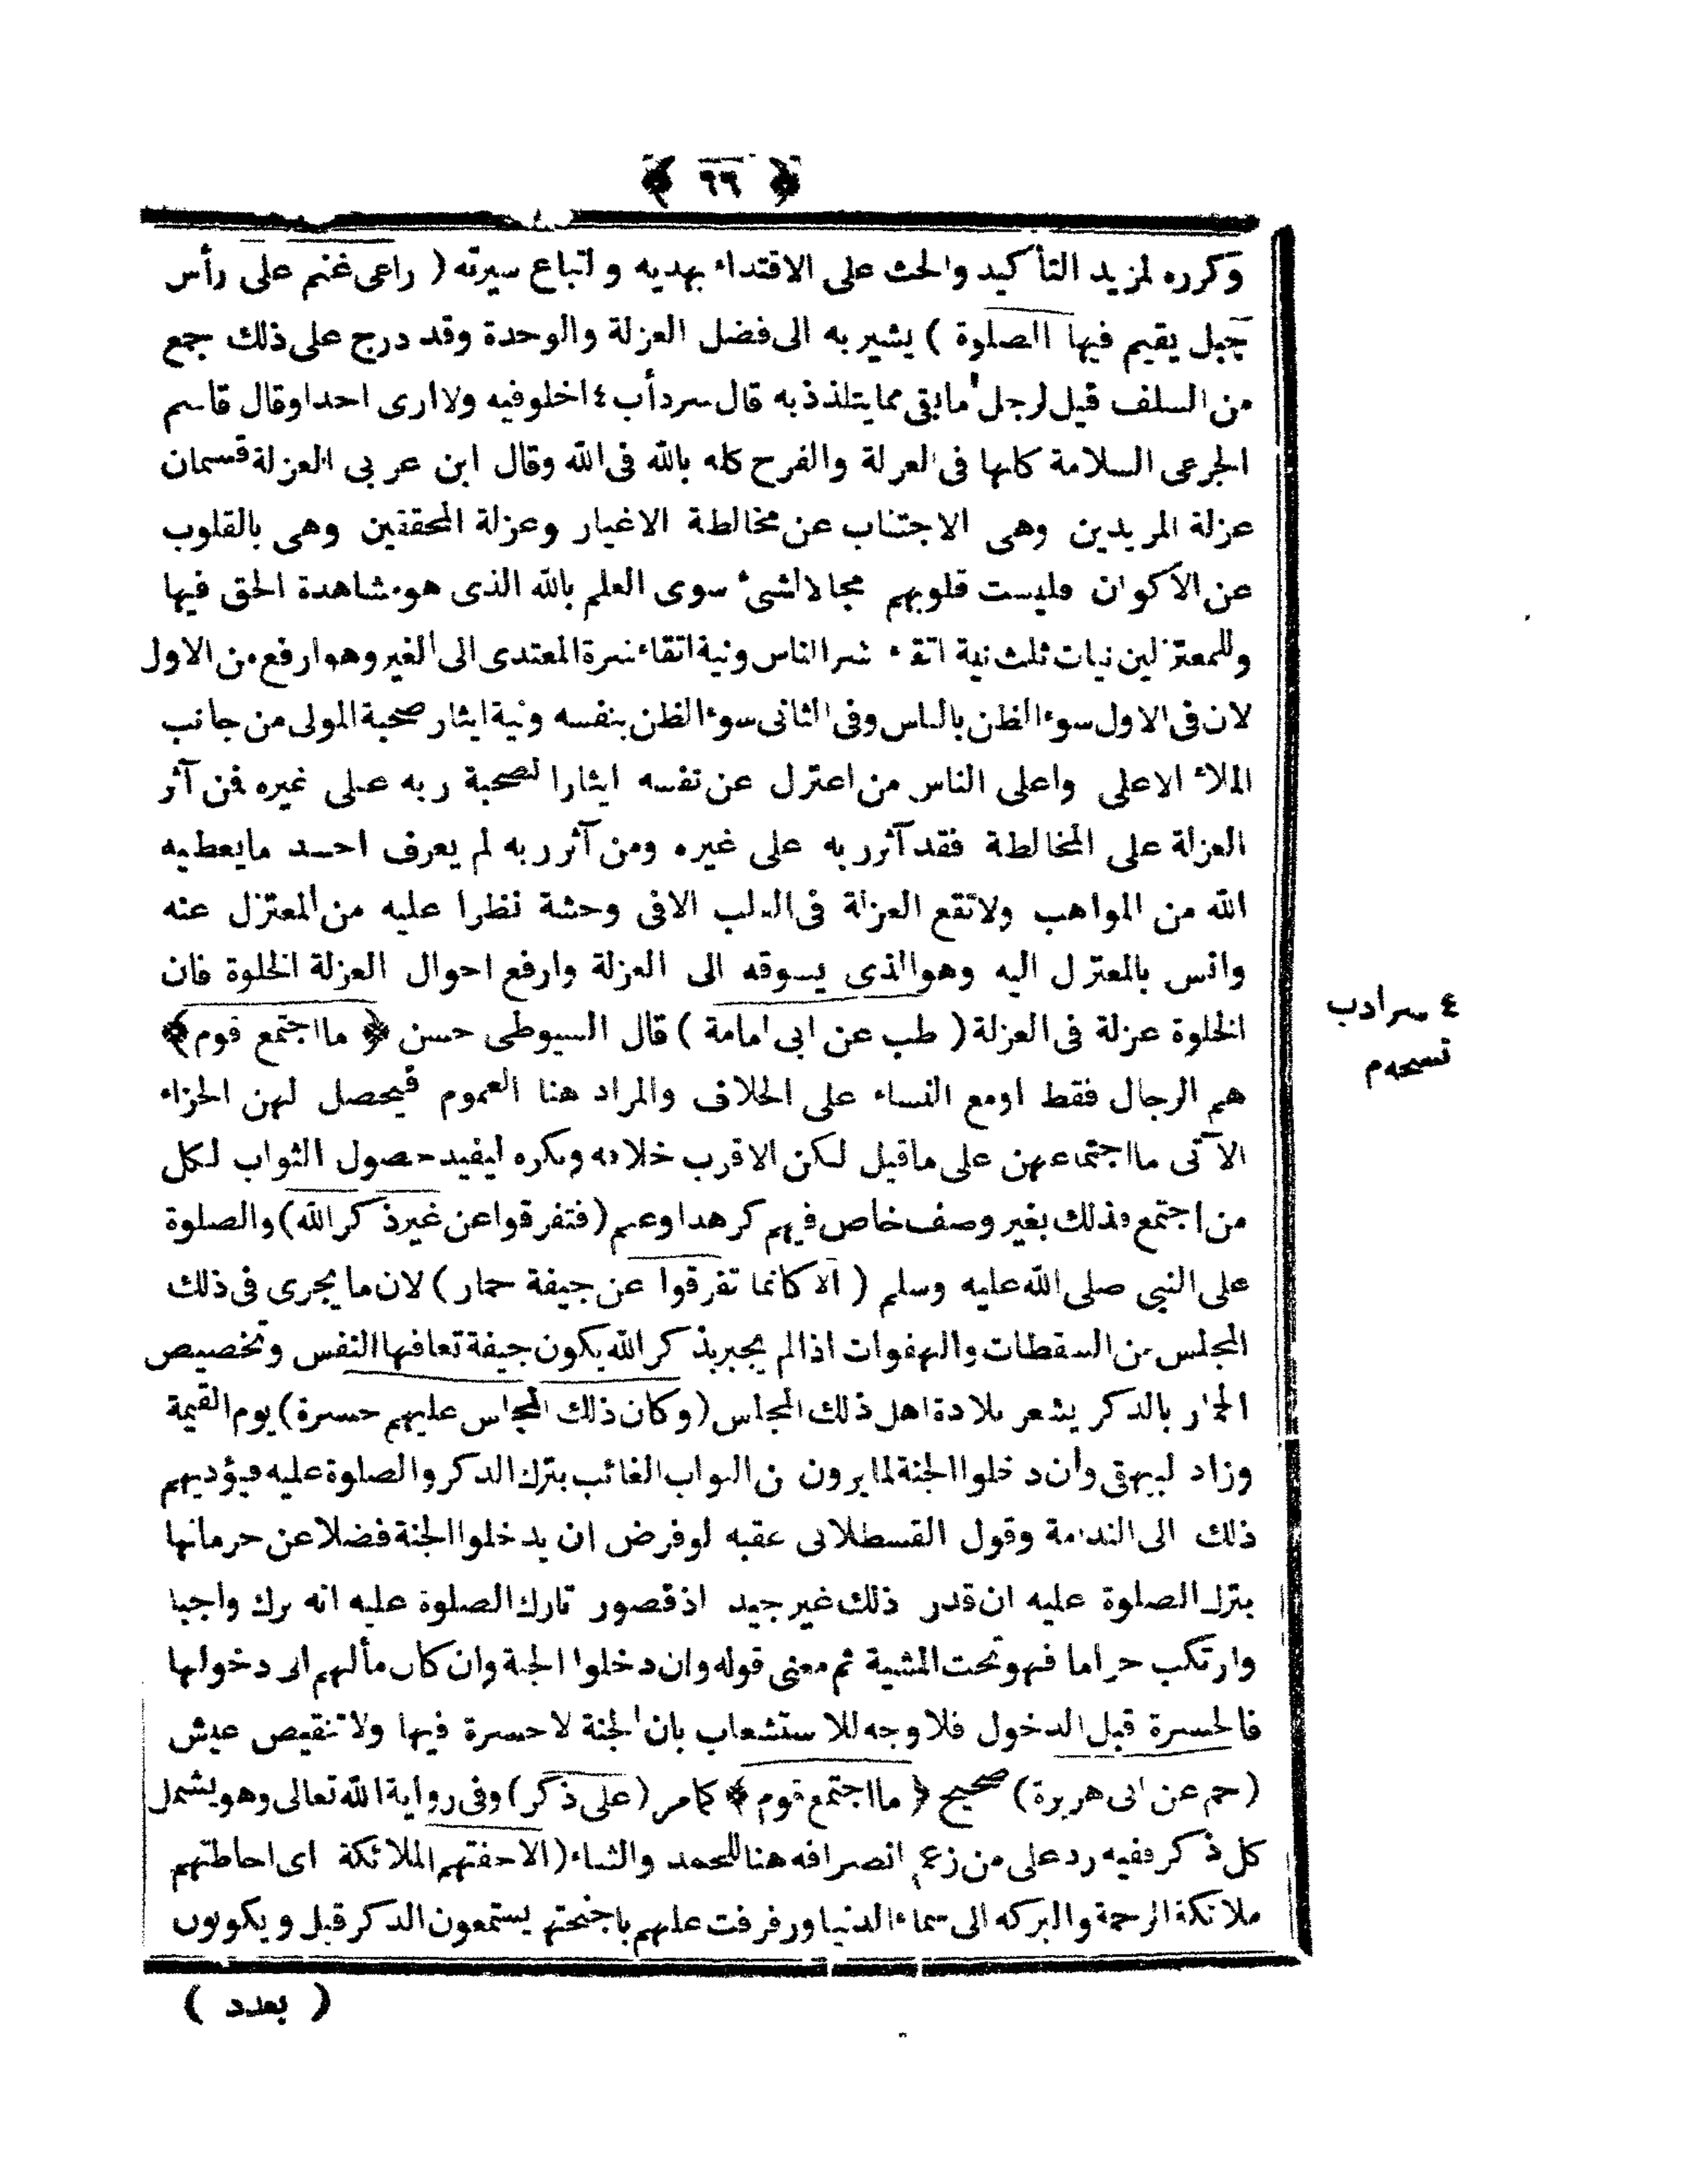 ﴿ ٦٦ ﴾
وكرره لمزيد التأكيد والحث على الاقتداء بهديه واتباع سيرته ( راعى غنم على رأس
جبل يقيم فيها الصلوة ) يشير به الى فضل العزلة والوحدة وقد درج على ذلك جمع
من السلف قيل لرجل مابقى مما يتلذذ به قال سردأب ٤ اخلو فيه ولا ارى احدا وقال قاسم
الجرعى السلامة كلها فى العزلة والفرح كله بالله فى الله وقال ابن عربى العزلة قسمان
عزلة المريدين وهى الاجتناب عن مخالطة الاغيار وعزلة المحققين وهى بالقلوب
عن الأكوان فليست قلوبهم مجالا لشئ سوى العلم بالله الذى هو مشاهدة الحق فيها
وللمعتزلين نيات ثلث نية اتقاء شر الناس ونية اتقاء شره المعتدى الى الغير وهو ارفع من الاول
لان فى الاول سوء الظن بالناس وفى الثانى سوء الظن بنفسه ونية ايثار صحبة المولى من جانب
الملاء الاعلى واعلى الناس من اعتزل عن نفسه ايثارا لصحبة ربه على غيره فمن آثر
العزلة على المخالطة فقد آثر ربه على غيره ومن آثر ربه لم يعرف احد مايعطيه
الله من المواهب ولاتقع العزلة فى القلب الا فى وحشة نظرا عليه من المعتزل عنه
وانس بالمعتزل اليه وهو الذى يسوقه الى العزلة وارفع احوال العزلة الخلوة فان
الخلوة عزلة فى العزلة ( طب عن ابى امامة ) قال السيوطى حسن ﴿ ما اجتمع قوم ﴾
٤ سرادب
نسخهم
هم الرجال فقط اومع النساء على الخلاف والمراد هنا العموم فيحصل لهن الجزاء
الآتى ما اجتماعهن على ماقيل لكن الاقرب خلافه ونكره ليفيد حصول الثواب لكل
من اجتمع فذلك بغير وصف خاص فيهم كزهدا وعلم ( فتفرقوا عن غير ذكر الله ) والصلوة
على النبى صلى الله عليه وسلم ( الا كانما تفرقوا عن جيفة حمار ) لان ما يجرى فى ذلك
المجلس من السقطات والهفوات اذا لم يجبر بذكر الله يكون جيفة تعافها النفس وتخصيص
الحمار بالذكر يشعر ببلادة اهل ذلك المجلس ( وكان ذلك المجلس عليهم حسرة ) يوم القيمة
وزاد لبيهقى وان دخلوا الجنة لما يرون من الثواب الغائب بترك الذكر والصلوة عليه فيؤديهم
ذلك الى الندامة وقول القسطلانى عقبه لو فرض ان يدخلوا الجنة فضلا عن حرمانها
بترك الصلوة عليه ان قدر ذلك غير جيد اذ قصور تارك الصلوة عليه انه ترك واجبا
وارتكب حراما فهو تحت المشية ثم معنى قوله وان دخلوا الجنة وان كان مألهم الى دخولها
فالحسرة قبل الدخول فلا وجه للاستشعاب بان الجنة لا حسرة فيها ولا تنقيص عيش
( حم عن ابى هريرة ) صحيح ﴿ ما اجتمع قوم ﴾ كمامر ( على ذكر ) وفى رواية الله تعالى وهو يشمل
كل ذكر ففيه رد على من زعم انصرافه هنا للحمد والثناء ( الا حفتهم الملائكة اى احاطتهم
ملائكة الرحمة والبركه الى سماء الدنيا ورفرفت عليهم باجنحتهم يستمعون الذكر قيل ويكونون
( بعدد )